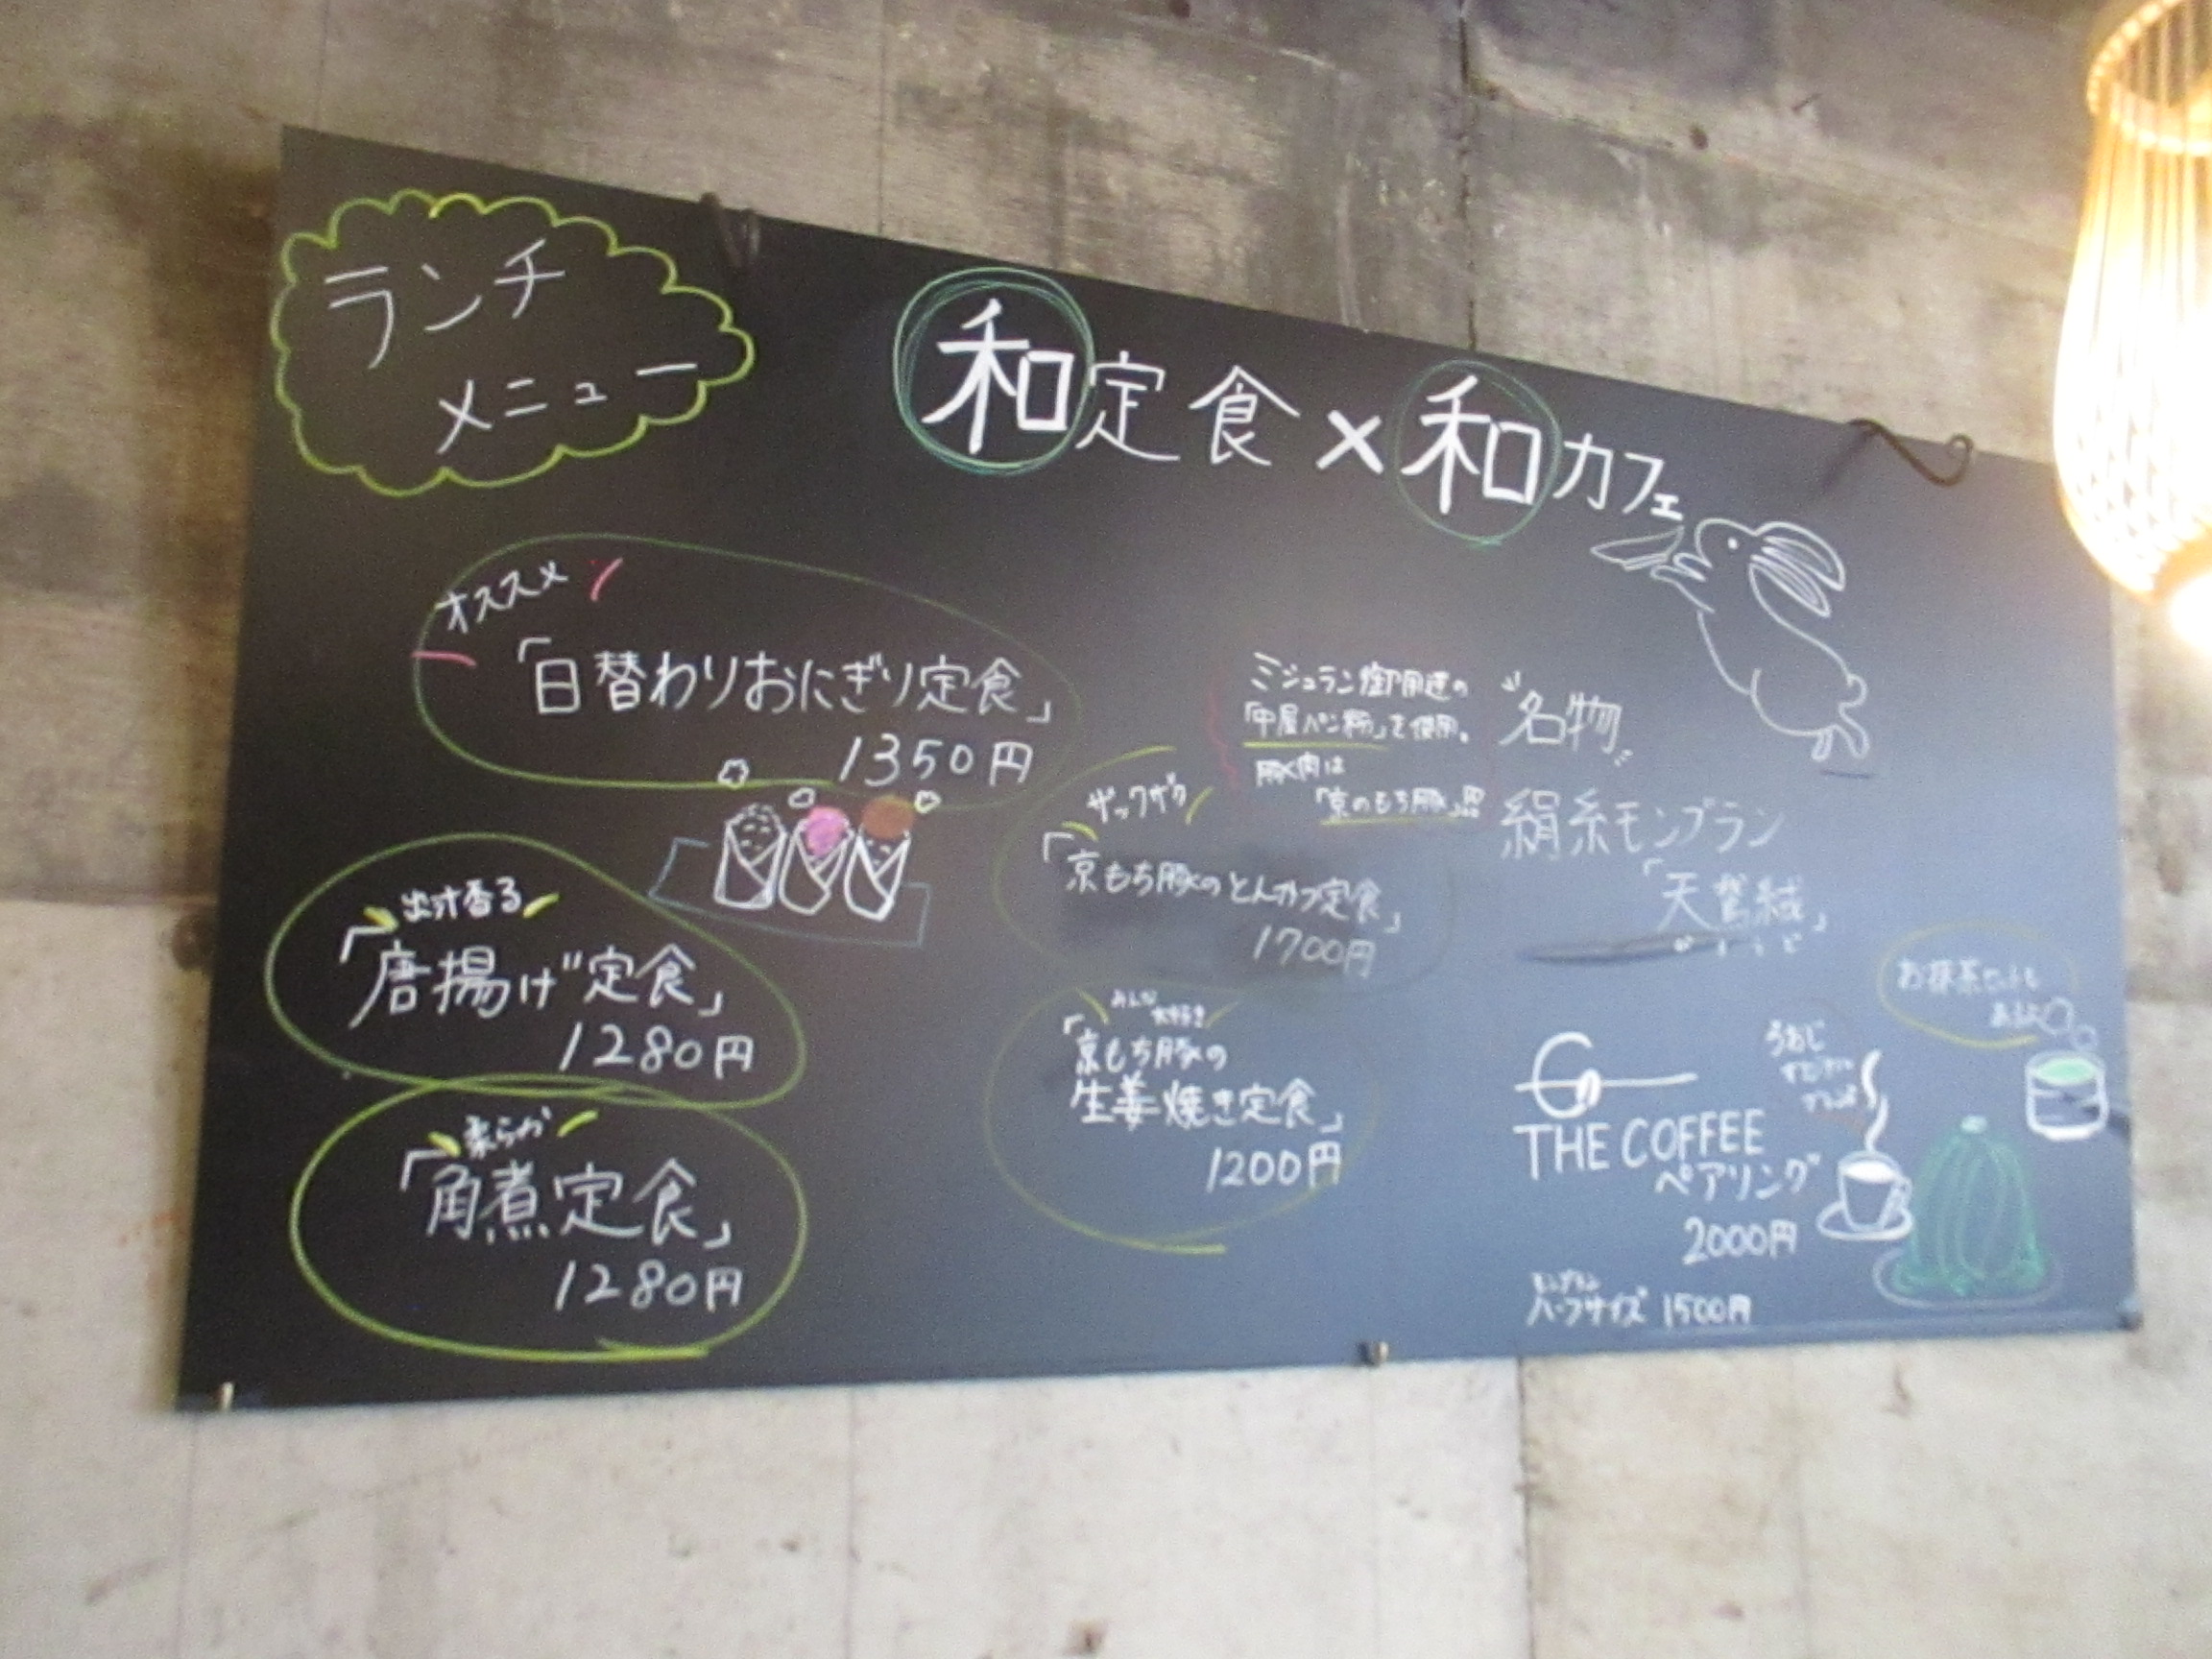 ランチ
メニュー
和定食×和カフェ
オススメ
「日替わりおにぎり定食」
1350円
出汁香る
「唐揚げ定食」
1280円
柔らか
「角煮定食」
1280円
ミシュラン御用達の
「中屋パン粉」を使用。
豚肉は
「京のもち豚」!!
ザックザク
「京もち豚のとんカツ定食」
1700円
みんな
大好き
「京もち豚の
生姜焼き定食」
1200円
"名物"
絹糸モンブラン
「天鵞絨」
びろうど
お抹茶セットも
あるよ
THE COFFEE
ペアリング
2000円
モンブラン
ハーフサイズ 1500円